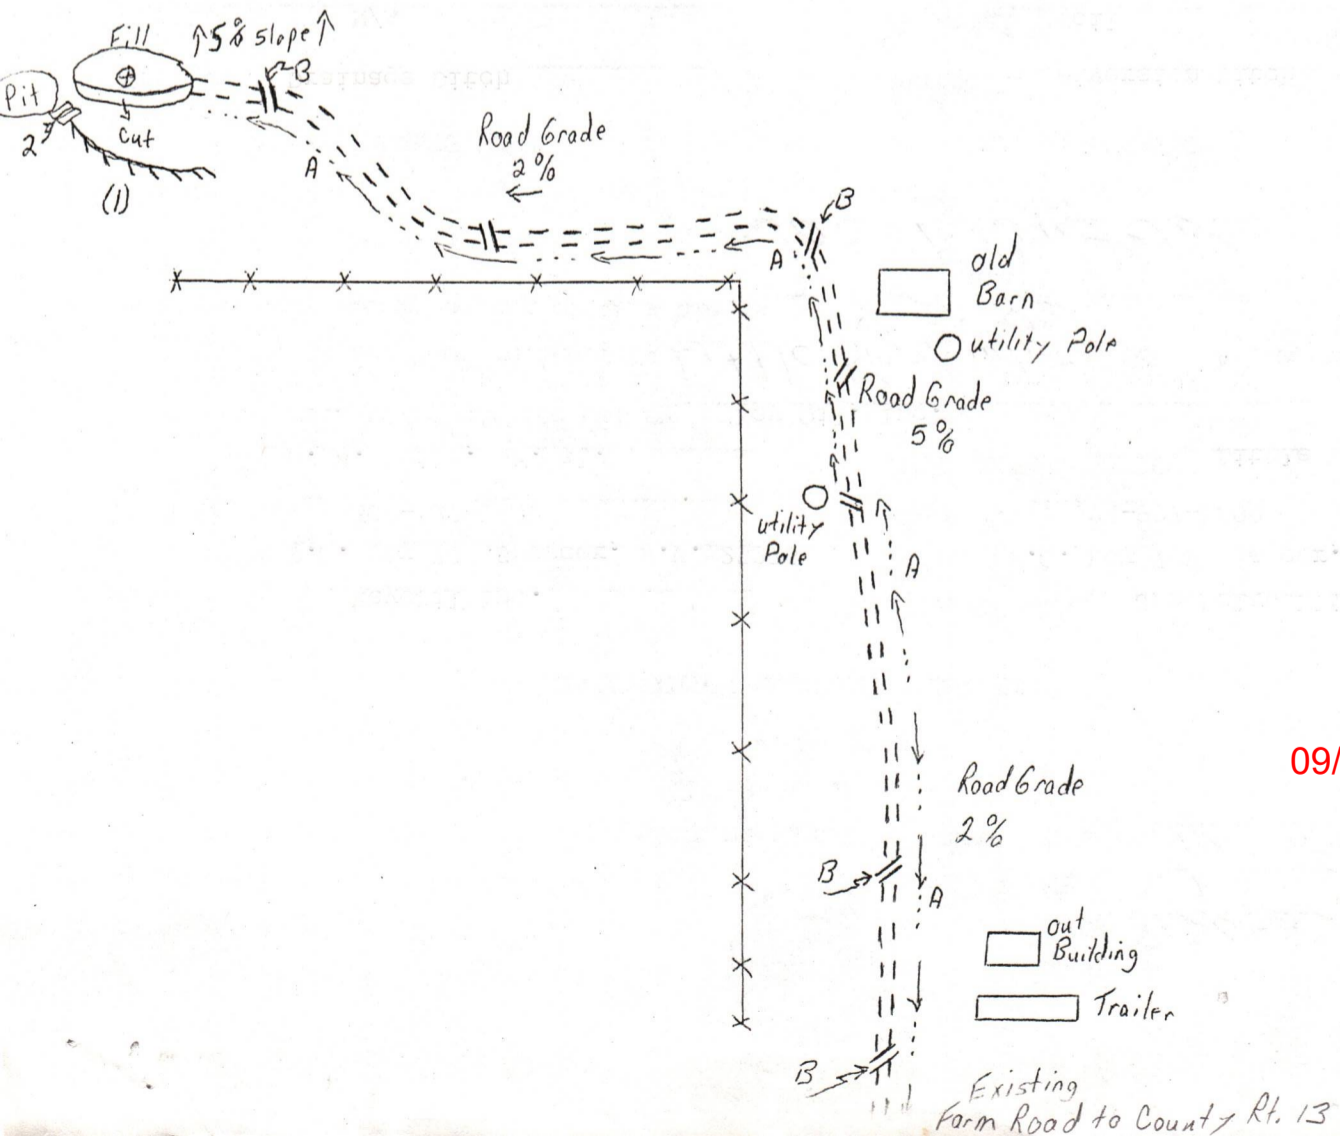 Fill
↑5% slope↑
B
Pit
2
Cut
(1)
A
Road Grade
2%
B
A
old
Barn
utility Pole
Road Grade
5%
utility
Pole
A
09/
Road Grade
2%
B
A
out
Building
Trailer
B
Existing
Farm Road to County Rt. 13